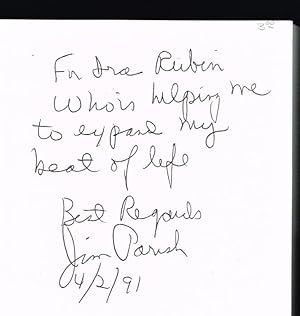 3.50
For Ira Rubin
Who's helping me
to expand my
beat of life
Best Regards
Jim Parish
4/2/91